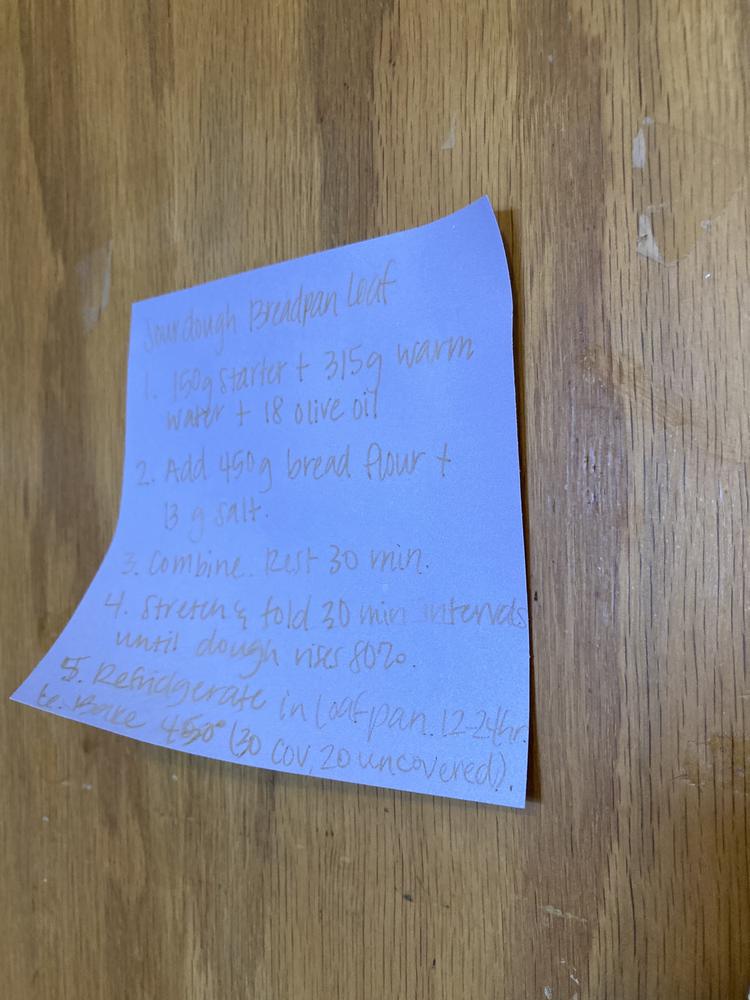 Sourdough Breadpan Loaf
1. 150g starter + 315g warm
water + 18 olive oil
2. Add 450g bread flour +
13 g salt.
3. Combine. Rest 30 min.
4. Stretch & fold 30 min intervals
until dough rises 80%.
5. Refridgerate in loaf pan. 12-24hr.
6. Bake 450° (30 cov, 20 uncovered).